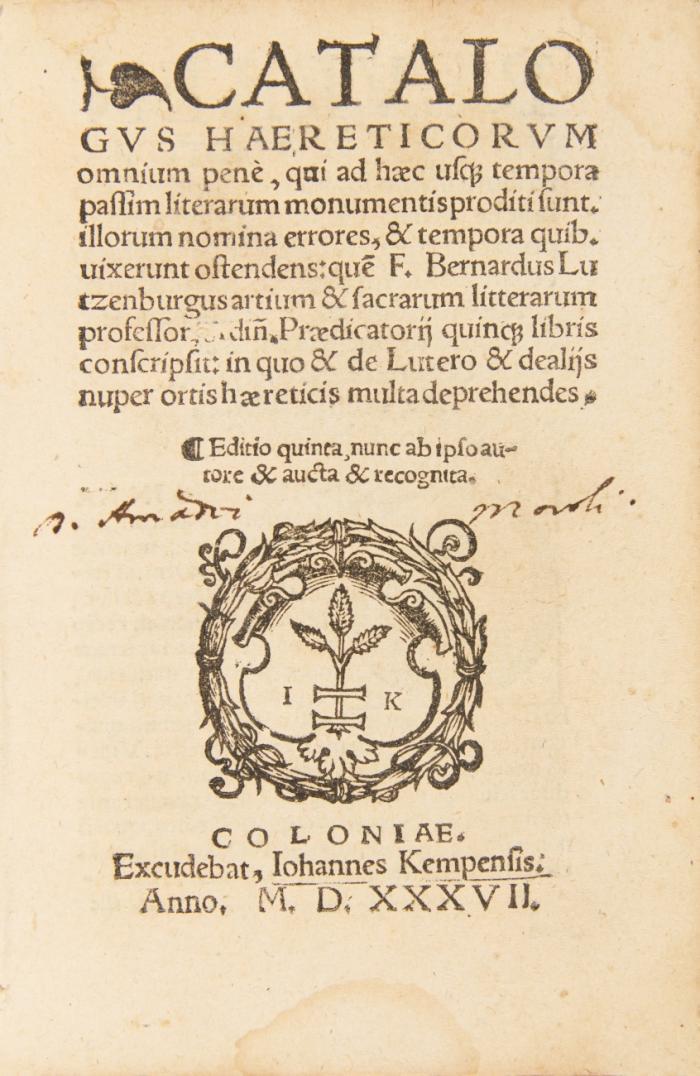 CATALO
GVS HAERETICORVM
omnium penè, qui ad hæc uſqꝫ tempora
paſſim literarum monumentis proditi ſunt.
illorum nomina errores, & tempora quib.
uixerunt oſtendens: quē F. Bernardus Lu
tzenburgus artium & ſacrarum litterarum
profeſſor, din̄. Prædicatorij quinqꝫ libris
conſcripſit: in quo & de Lutero & de alijs
nuper ortis hæreticis multa deprehendes.
¶ Editio quinta, nunc ab ipſo au-
tore & aucta & recognita.
I K
COLONIAE.
Excudebat, Iohannes Kempenſis.
Anno. M. D. XXXVII.